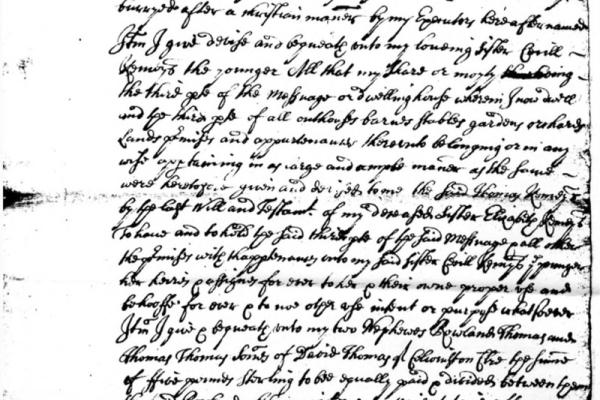 burryed after a Christian maner by my Executors hereafter named
Itm I give devise and bequeath unto my loveing sister Cecill
Kemeys the younger All that my share or moyty being
the third pte of the Messuage or dwelling house wherein I now dwell
and the third pte of all outhouses barnes stables gardens orchards
Lands p'misses and appurtenances thereunto belonging or in any
wise appertaining in as large and ample maner as the same
were heretofore given and devised to me the said Thomas Kemeys
by the last Will and Testamt. of my deceased sister Elizabeth Kemeys
To have and to hold the said third pte of the said Messuage & all other
the p'misses with thapptenances unto my said sister Cecill Kemeys ye younger
her heires & assignes for ever to her & their owne proper use and
behoofe for ever & to noe other use intent or purpose whatsoever
Itm I give & bequeath unto my two Nephewes Rowland Thomas and
Thomas Thomas sonnes of David Thomas of the summe
of ffive pounds sterling to bee equally paid & divided between them